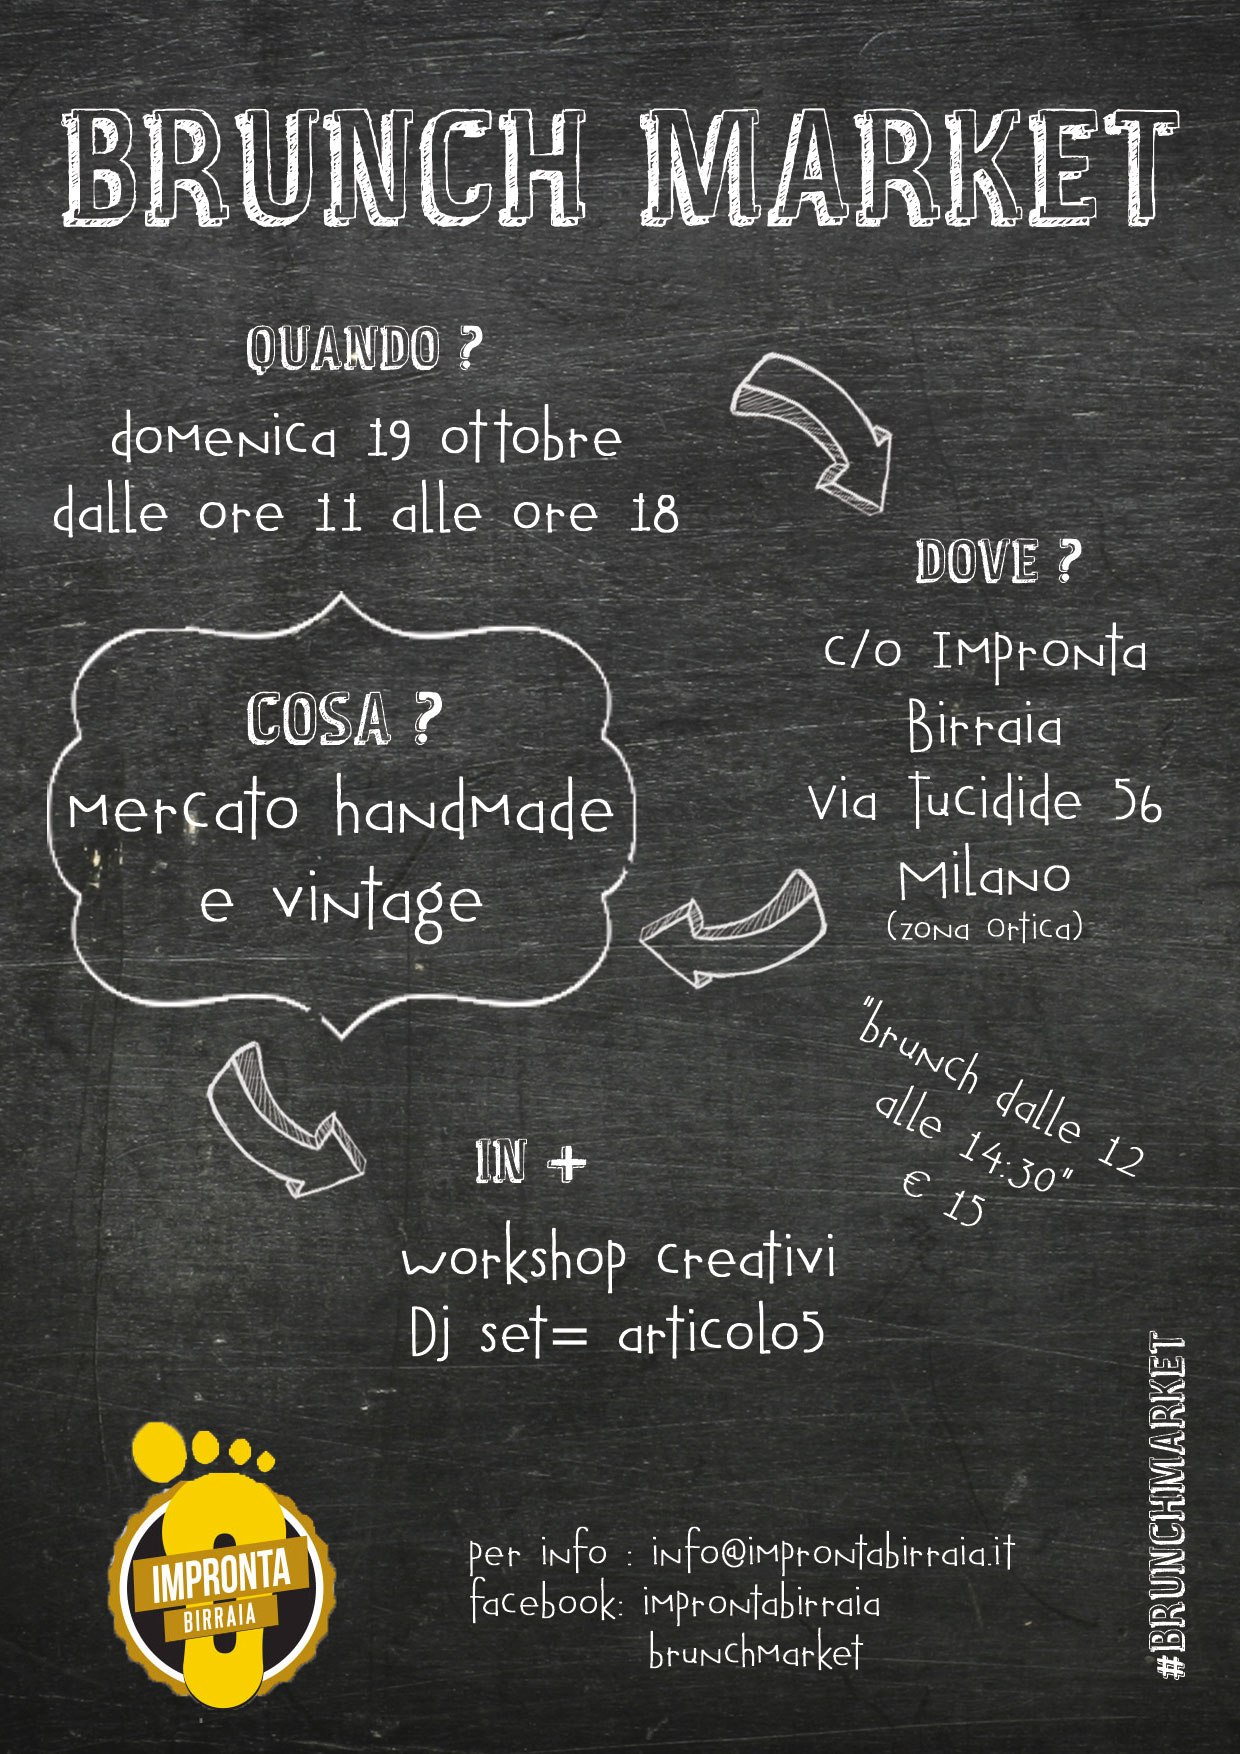 BRUNCH MARKET
QUANDO ?
domenica 19 ottobre
dalle ore 11 alle ore 18
DOVE ?
c/o Impronta
Birraia
via Tucidide 56
Milano
(zona Ortica)
COSA ?
Mercato handmade
e vintage
"brunch dalle 12
alle 14:30"
€ 15
IN +
workshop creativi
Dj set= articolo5
IMPRONTA
BIRRAIA
per info : info@improntabirraia.it
facebook: improntabirraia
brunchmarket
#BRUNCHMARKET